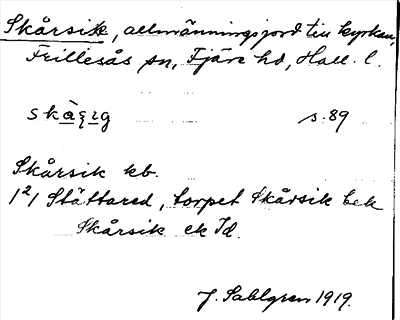 Skårsik, allmänningsjord till kyrkan,
Frillesås sn, Fjäre hd, Hall. l.
s. 89
Skårsik kb.
1/2 1 Stättared, torpet Skårsik bek
Skårsik ek Id.
J. Sahlgren 1919.